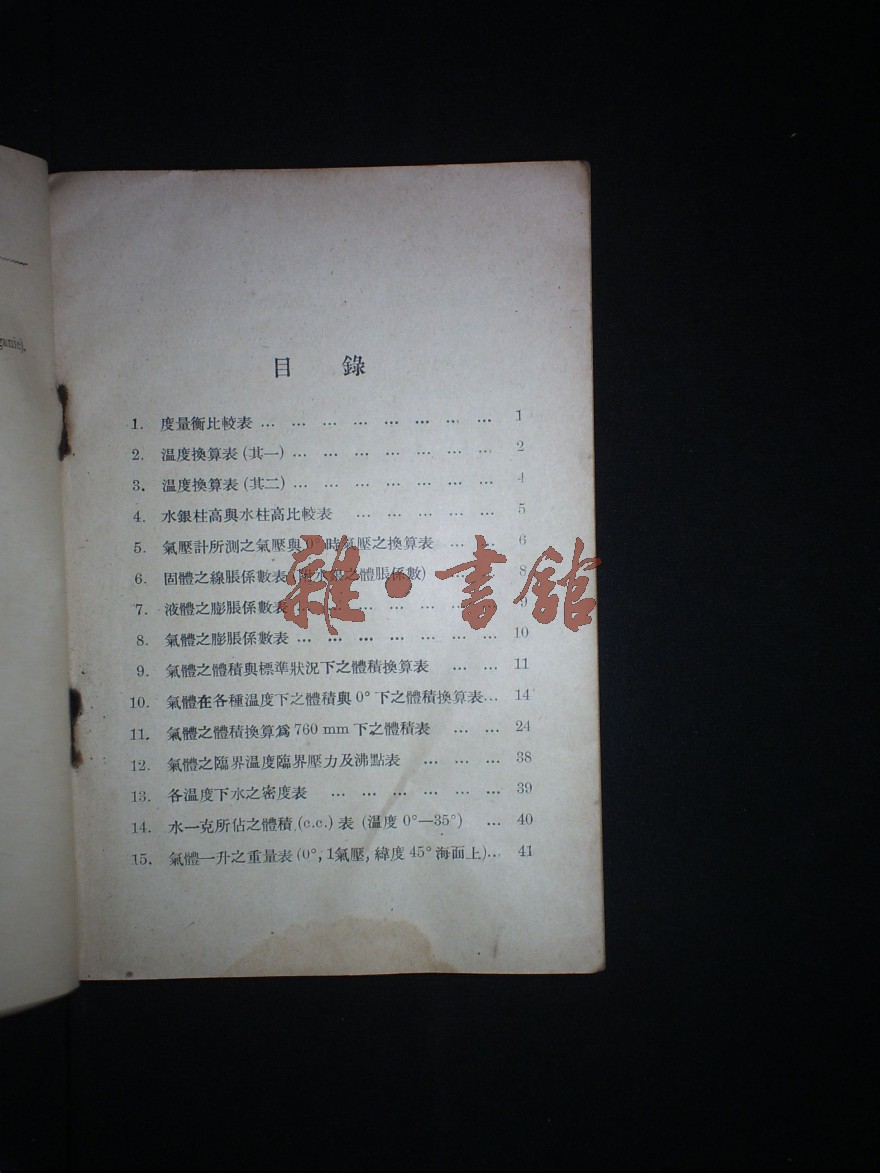 目　錄
1. 度量衡比較表 … … … … … … … … 1
2. 温度換算表 (其一) … … … … … … … 2
3. 温度換算表 (其二) … … … … … … … 4
4. 水銀柱高與水柱高比較表 … … … … … 5
5. 氣壓計所測之氣壓與0°時氣壓之換算表 … … 6
6. 固體之線脹係數表 (附水銀之體脹係數) … … 8
7. 液體之膨脹係數表 … … … … … … … 9
8. 氣體之膨脹係數表 … … … … … … … 10
9. 氣體之體積與標準狀況下之體積換算表 … … 11
10. 氣體在各種温度下之體積與 0° 下之體積換算表… 14
11. 氣體之體積換算爲 760 mm 下之體積表 … … 24
12. 氣體之臨界温度臨界壓力及沸點表 … … … 38
13. 各温度下水之密度表 … … … … … … 39
14. 水一克所佔之體積 (c.c.) 表 (温度 0°—35°) … 40
15. 氣體一升之重量表 (0°, 1氣壓, 緯度 45° 海面上)… 41
雜·書館